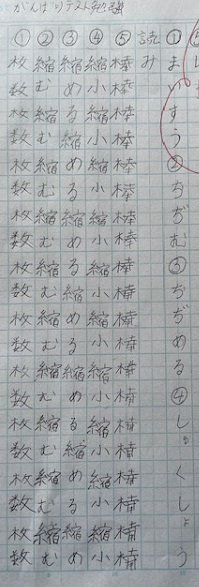 がんばりテスト勉強
⑤し
①まいすう②ちぢむ③ちぢめる④しゅくしょう
読み
⑤棒棒棒棒棒棒棒棒棒棒棒棒棒棒棒棒棒棒棒棒
④縮小縮小縮小縮小縮小縮小縮小縮小縮小縮小
③縮める縮める縮める縮める縮める縮める縮め
②縮む縮む縮む縮む縮む縮む縮む縮む縮む縮む
①枚数枚数枚数枚数枚数枚数枚数枚数枚数枚数